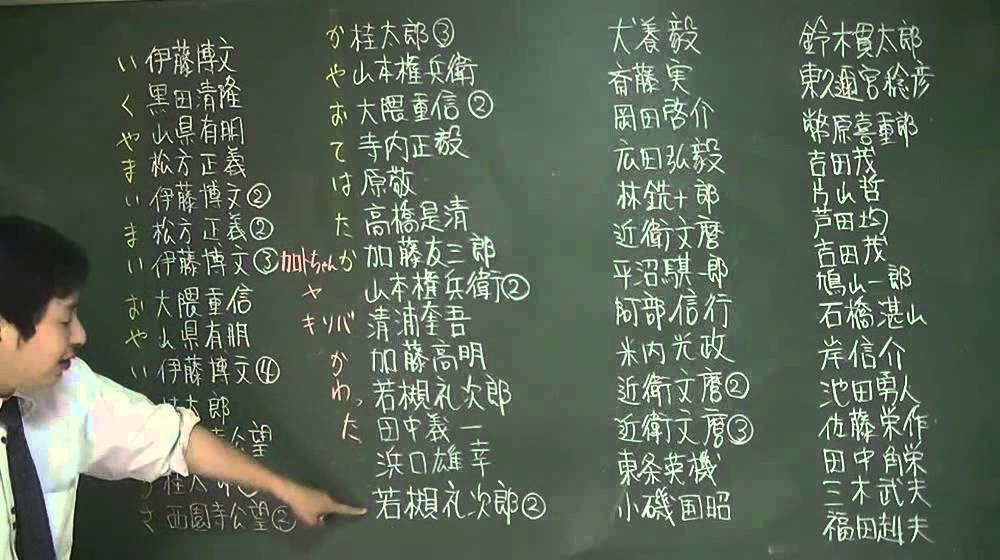 い 伊藤博文
く 黒田清隆
や 山県有朋
ま 松方正義
い 伊藤博文②
ま 松方正義②
い 伊藤博文③
お 大隈重信
や 山県有朋
い 伊藤博文④
太郎
公望
桂太
さ 西園寺公望②
か 桂太郎③
や 山本権兵衛
お 大隈重信②
て 寺内正毅
は 原敬
た 高橋是清
加トちゃん か 加藤友三郎
ヤ 山本権兵衛②
キ 清浦奎吾
か 加藤高明
わ 若槻礼次郎
っ
た 田中義一
浜口雄幸
若槻礼次郎②
犬養毅
斎藤実
岡田啓介
広田弘毅
林銑十郎
近衛文麿
平沼騏一郎
阿部信行
米内光政
近衛文麿②
近衛文麿③
東条英機
小磯国昭
鈴木貫太郎
東久邇宮稔彦
幣原喜重郎
吉田茂
片山哲
芦田均
吉田茂
鳩山一郎
石橋湛山
岸信介
池田勇人
佐藤栄作
田中角栄
三木武夫
福田赳夫